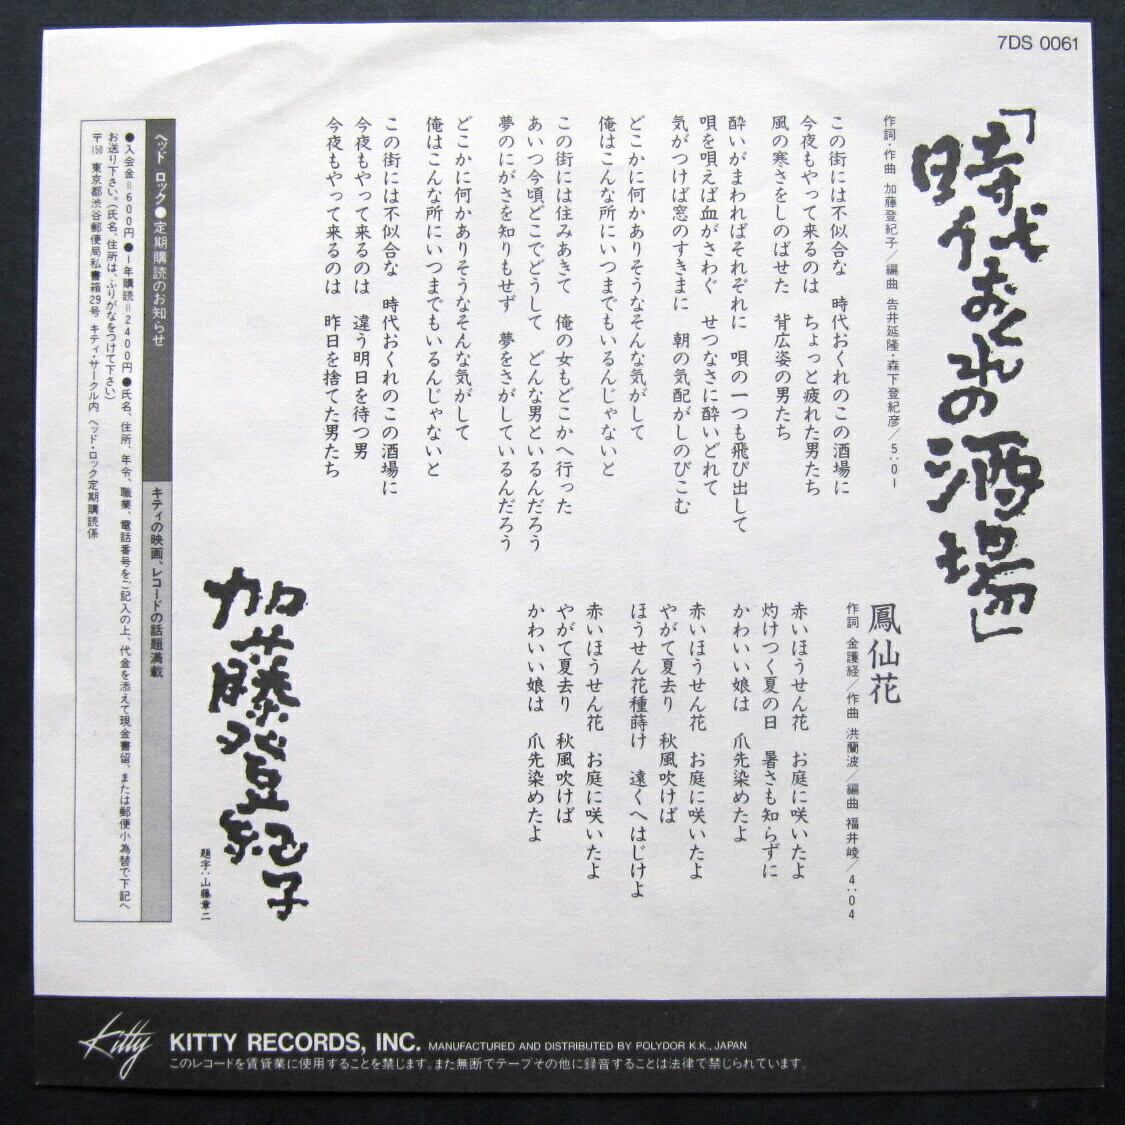 7DS 0061
「時代おくれの酒場」
作詞・作曲 加藤登紀子／編曲 告井延隆・森下登紀彦／5:01
この街には不似合な 時代おくれのこの酒場に
今夜もやって来るのは ちょっと疲れた男たち
風の寒さをしのばせた 背広姿の男たち
酔いがまわればそれぞれに 唄の一つも飛び出して
唄を唄えば血がさわぐ せつなさに酔いどれて
気がつけば窓のすきまに 朝の気配がしのびこむ
どこかに何かありそうなそんな気がして
俺はこんな所にいつまでもいるんじゃないと
この街には住みあきて 俺の女もどこかへ行った
あいつ今頃どこでどうして どんな男といるんだろう
夢のにがさを知りもせず 夢をさがしているんだろう
どこかに何かありそうなそんな気がして
俺はこんな所にいつまでもいるんじゃないと
この街には不似合な 時代おくれのこの酒場に
今夜もやって来るのは 違う明日を待つ男
今夜もやって来るのは 昨日を捨てた男たち
鳳仙花
作詞 金護経／作曲 洪蘭波／編曲 福井崚／4:04
赤いほうせん花 お庭に咲いたよ
灼けつく夏の日 暑さも知らずに
かわいい娘は 爪先染めたよ
赤いほうせん花 お庭に咲いたよ
やがて夏去り 秋風吹けば
ほうせん花種蒔け 遠くへはじけよ
赤いほうせん花 お庭に咲いたよ
やがて夏去り 秋風吹けば
かわいい娘は 爪先染めたよ
加藤登紀子
題字:山藤章二
ヘッド ロック●定期購読のお知らせ
キティの映画、レコードの話題満載
●入会金＝600円●1年購読＝2400円●氏名、住所、年令、職業、電話番号をご記入の上、代金を添えて現金書留、または郵便小為替で下記へ
お送り下さい。(氏名、住所は、ふりがなをつけて下さい)
〒150 東京都渋谷郵便局私書箱29号 キティ・サークル内 ヘッド・ロック定期購読係
Kitty
KITTY RECORDS, INC. MANUFACTURED AND DISTRIBUTED BY POLYDOR K.K., JAPAN
このレコードを賃貸業に使用することを禁じます。また無断でテープその他に録音することは法律で禁じられています。